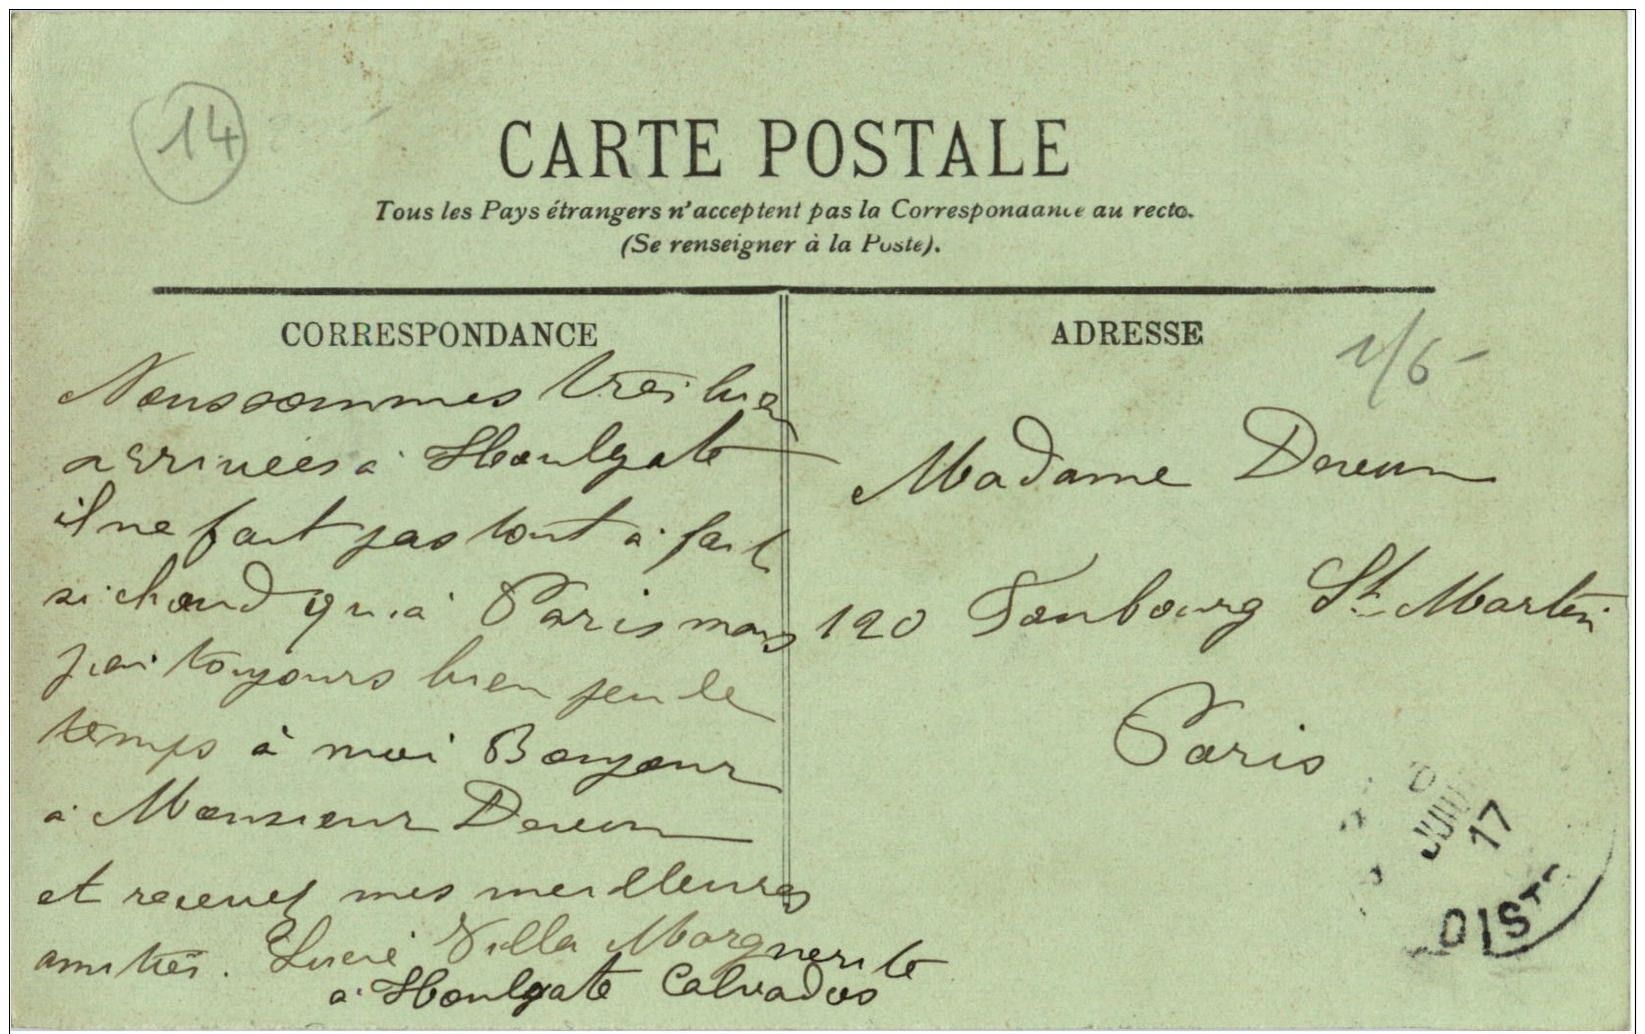 14
CARTE POSTALE
Tous les Pays étrangers n'acceptent pas la Correspondance au recto.
(Se renseigner à la Poste).
CORRESPONDANCE
Nous sommes très bien
arrivées à Houlgate
il ne fait pas tout à fait
si chaud qu'à Paris mais
j'ai toujours bien peu le
temps à moi Bonjour
à Monsieur
et recevez mes meilleures
amitiés. Lucie Villa Marguerite
à Houlgate Calvados
ADRESSE
Madame
120 Faubourg St Martin
Paris
17
DIST